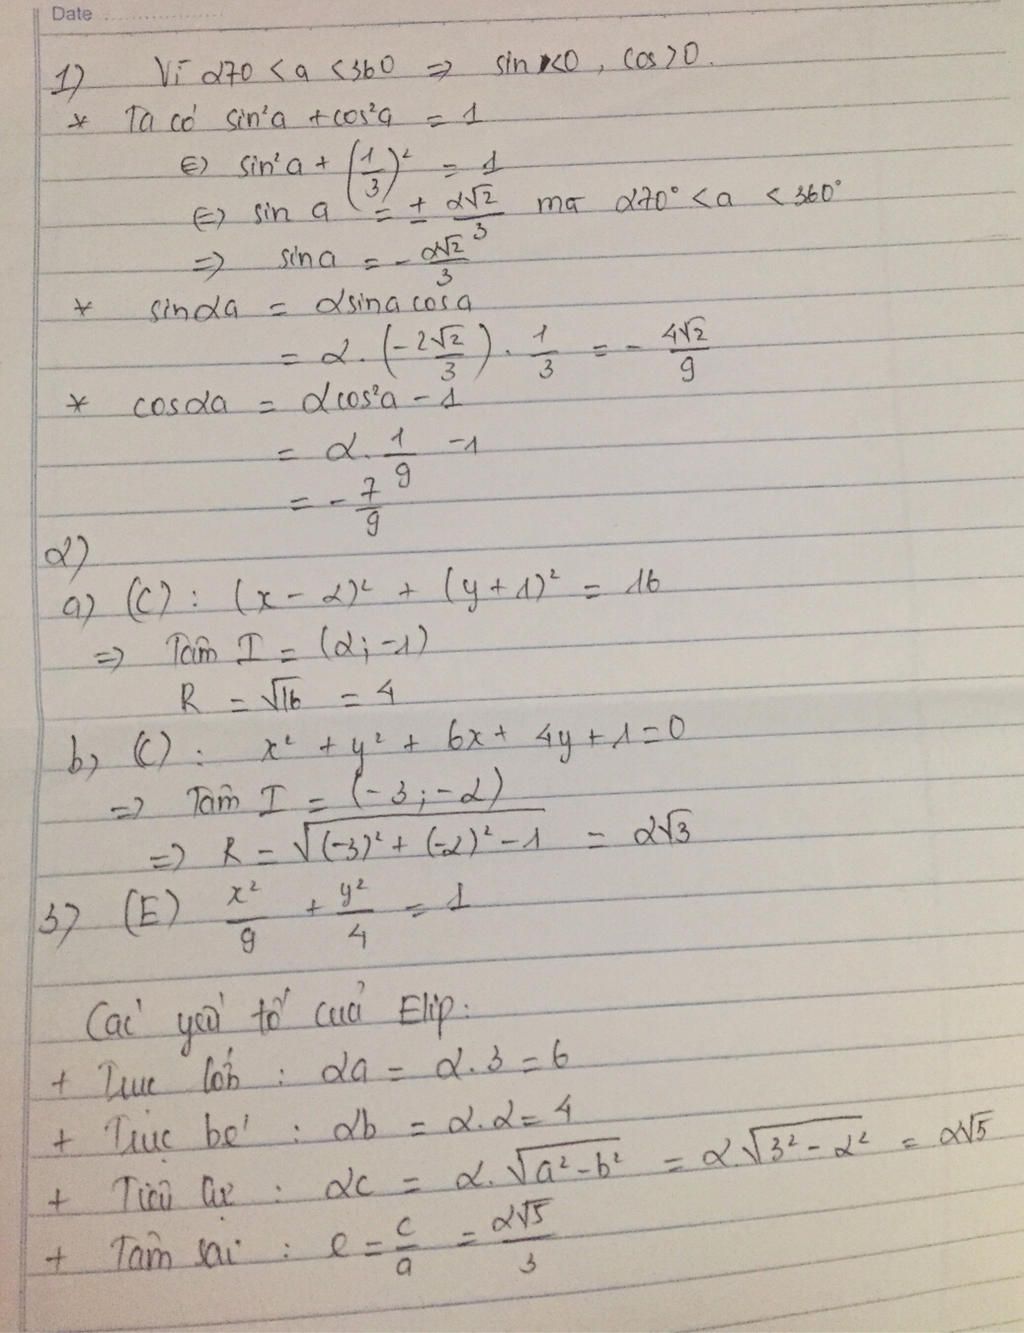 Date
1) Vì 270 < a < 360 ⇒ sin <0, cos>0.
* Ta có sin²a + cos²a = 1
⇔ sin²a + (1/3)² = 1
⇔ sin a = ± 2√2/3 mà 270° < a < 360°
⇒ sina = - 2√2/3
* sin2a = 2sinacosa
= 2. (-2√2/3) . 1/3 = - 4√2/9
* cos2a = 2cos²a - 1
= 2. 1/9 -1
= - 7/9
2)
a) (C) : (x - 2)² + (y + 1)² = 16
⇒ Tâm I = (2; -1)
R = √16 = 4
b) (C) : x² + y² + 6x + 4y + 1 = 0
⇒ Tâm I = (-3; -2)
⇒ R = √((-3)² + (-2)² - 1) = 2√3
3) (E) x²/9 + y²/4 = 1
Các yếu tố của Elip:
+ Trục lớn : 2a = 2.3 = 6
+ Trục bé : 2b = 2.2 = 4
+ Tiêu cự : 2c = 2.√(a² - b²) = 2√(3² - 2²) = 2√5
+ Tâm sai : e = c/a = 2√5/3